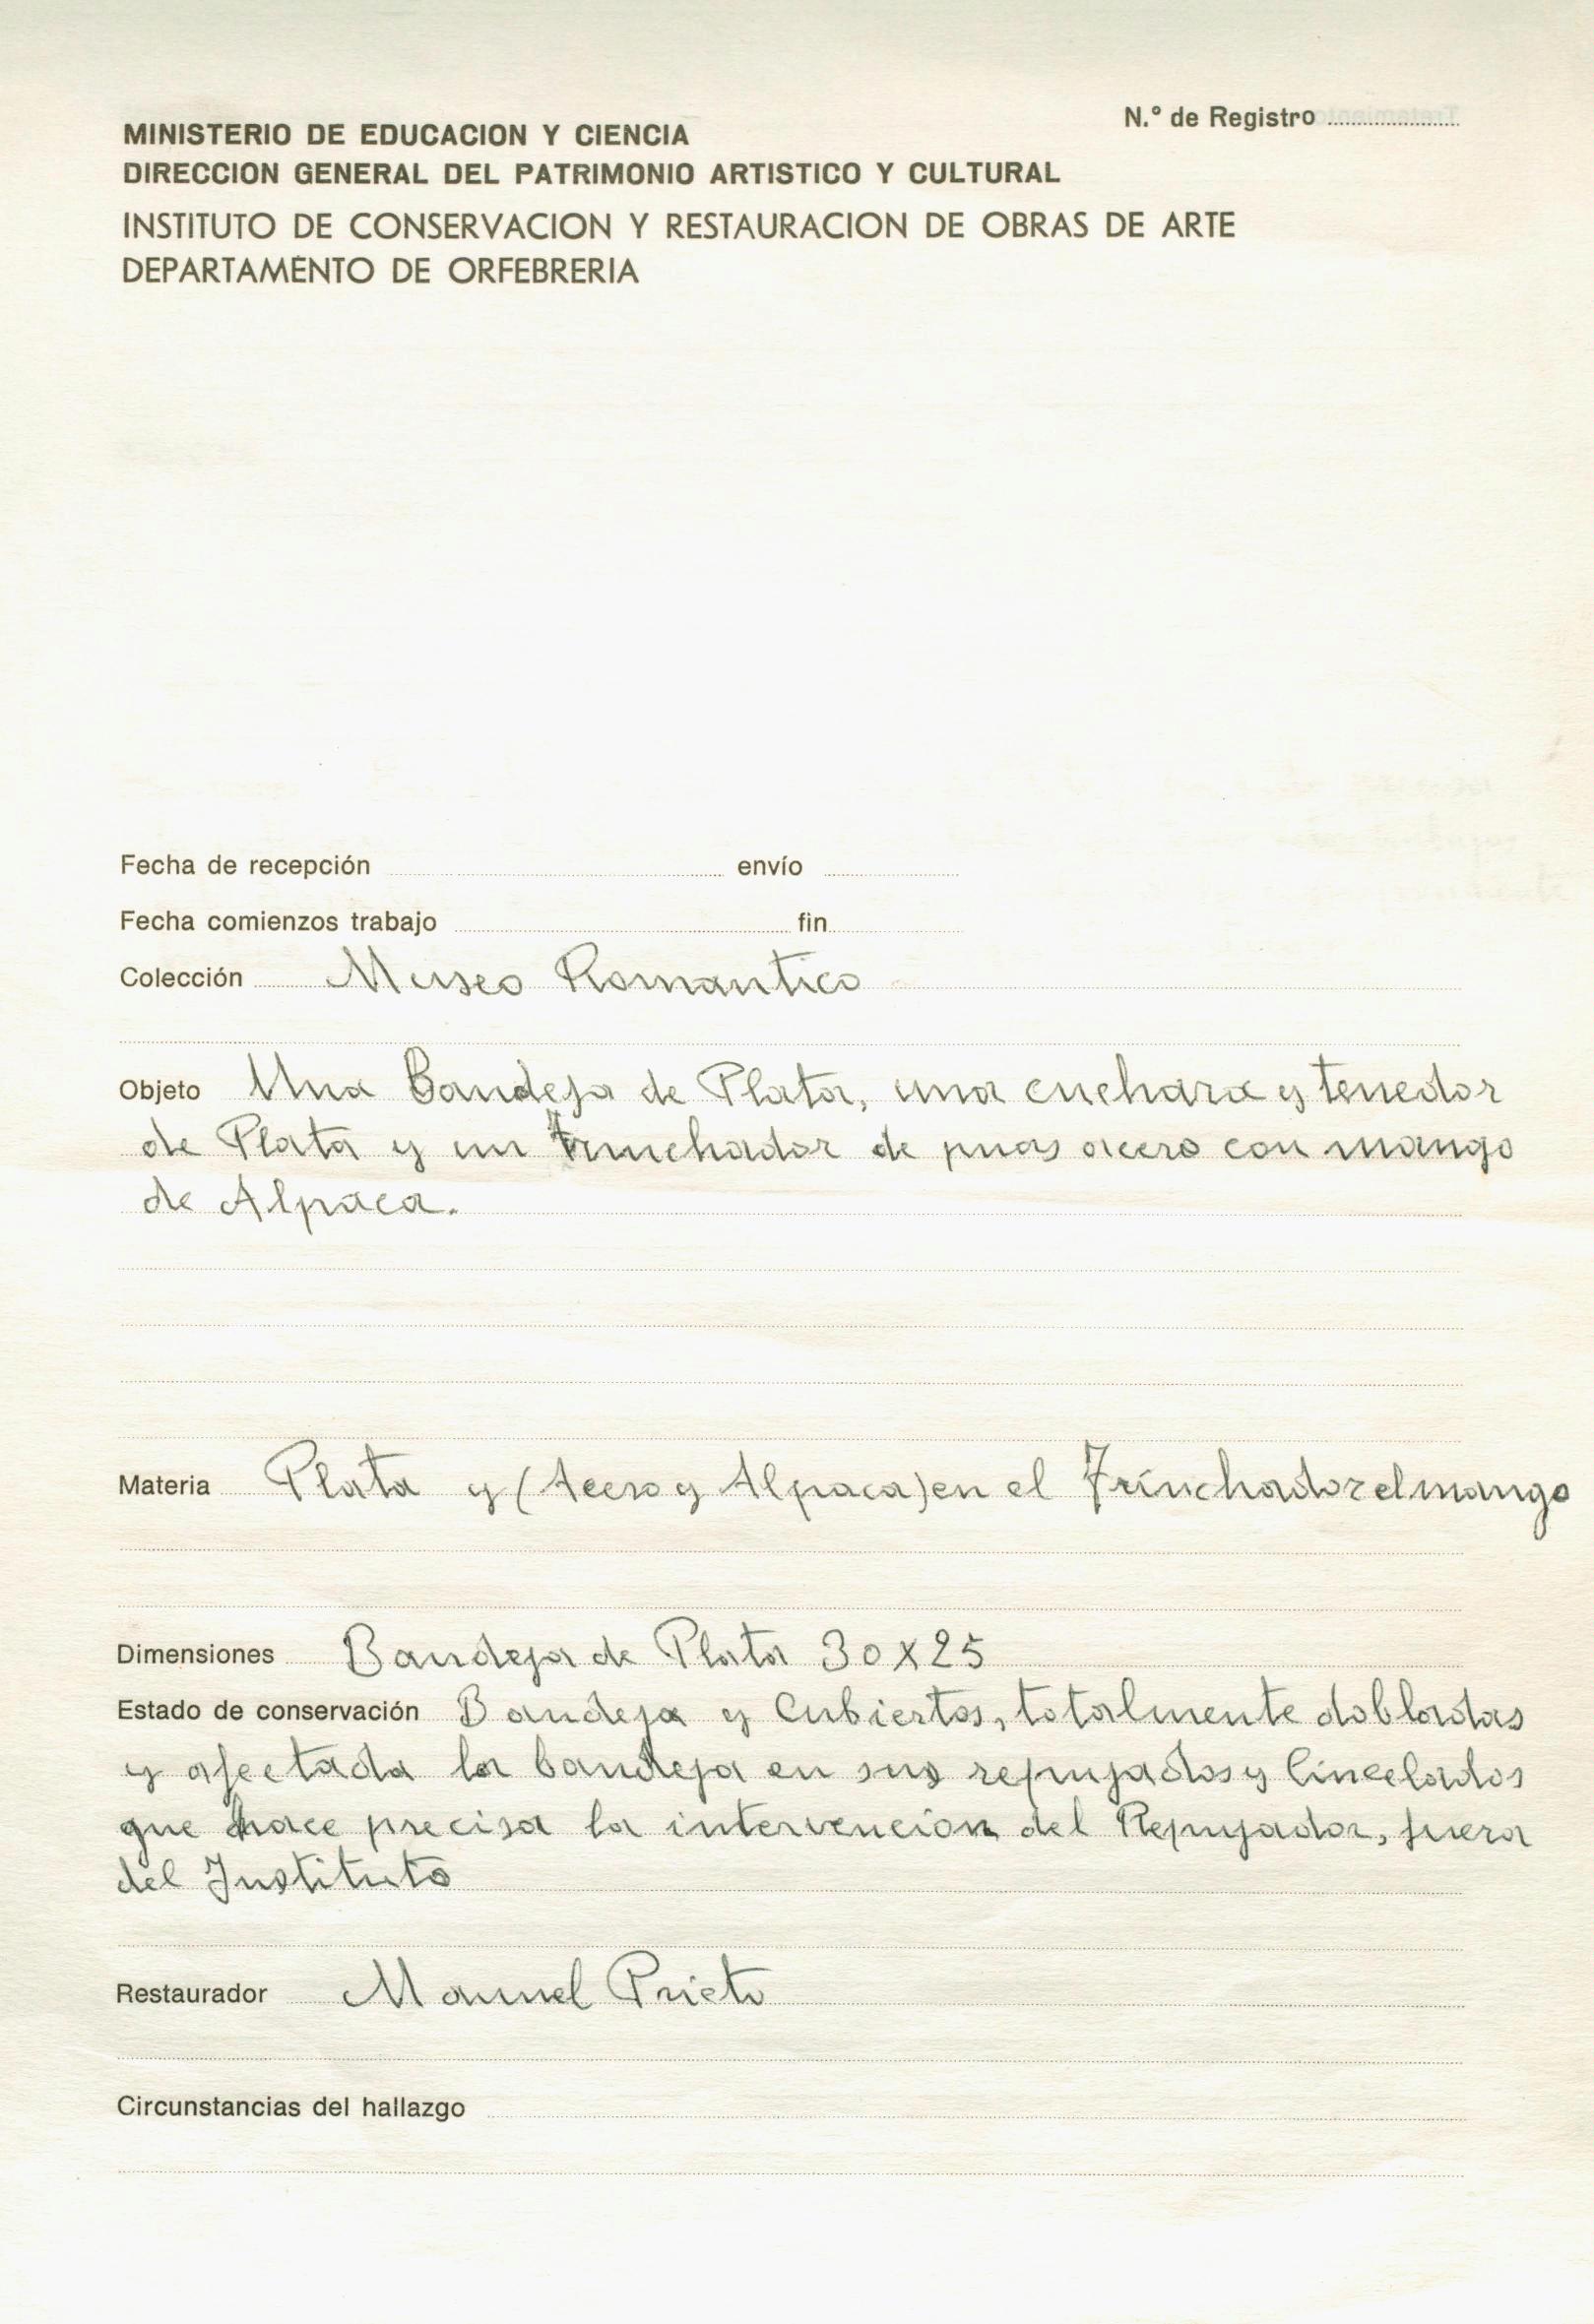 N.º de Registro
MINISTERIO DE EDUCACION Y CIENCIA
DIRECCION GENERAL DEL PATRIMONIO ARTISTICO Y CULTURAL
INSTITUTO DE CONSERVACION Y RESTAURACION DE OBRAS DE ARTE
DEPARTAMENTO DE ORFEBRERIA
Fecha de recepción envío
Fecha comienzos trabajo fin
Colección Museo Romantico
Objeto Una Bandeja de Plata, una cuchara y tenedor
de Plata y un Trinchador de puas acero con mango
de Alpaca.
Materia Plata y (Acero y Alpaca) en el Trinchador el mango
Dimensiones Bandeja de Plata 30x25
Estado de conservación Bandeja y Cubiertos, totalmente dobladas
y afectada la bandeja en sus repujados y Cincelados
que hace precisa la intervención del Repujador, fuera
del Instituto
Restaurador Manuel Prieto
Circunstancias del hallazgo